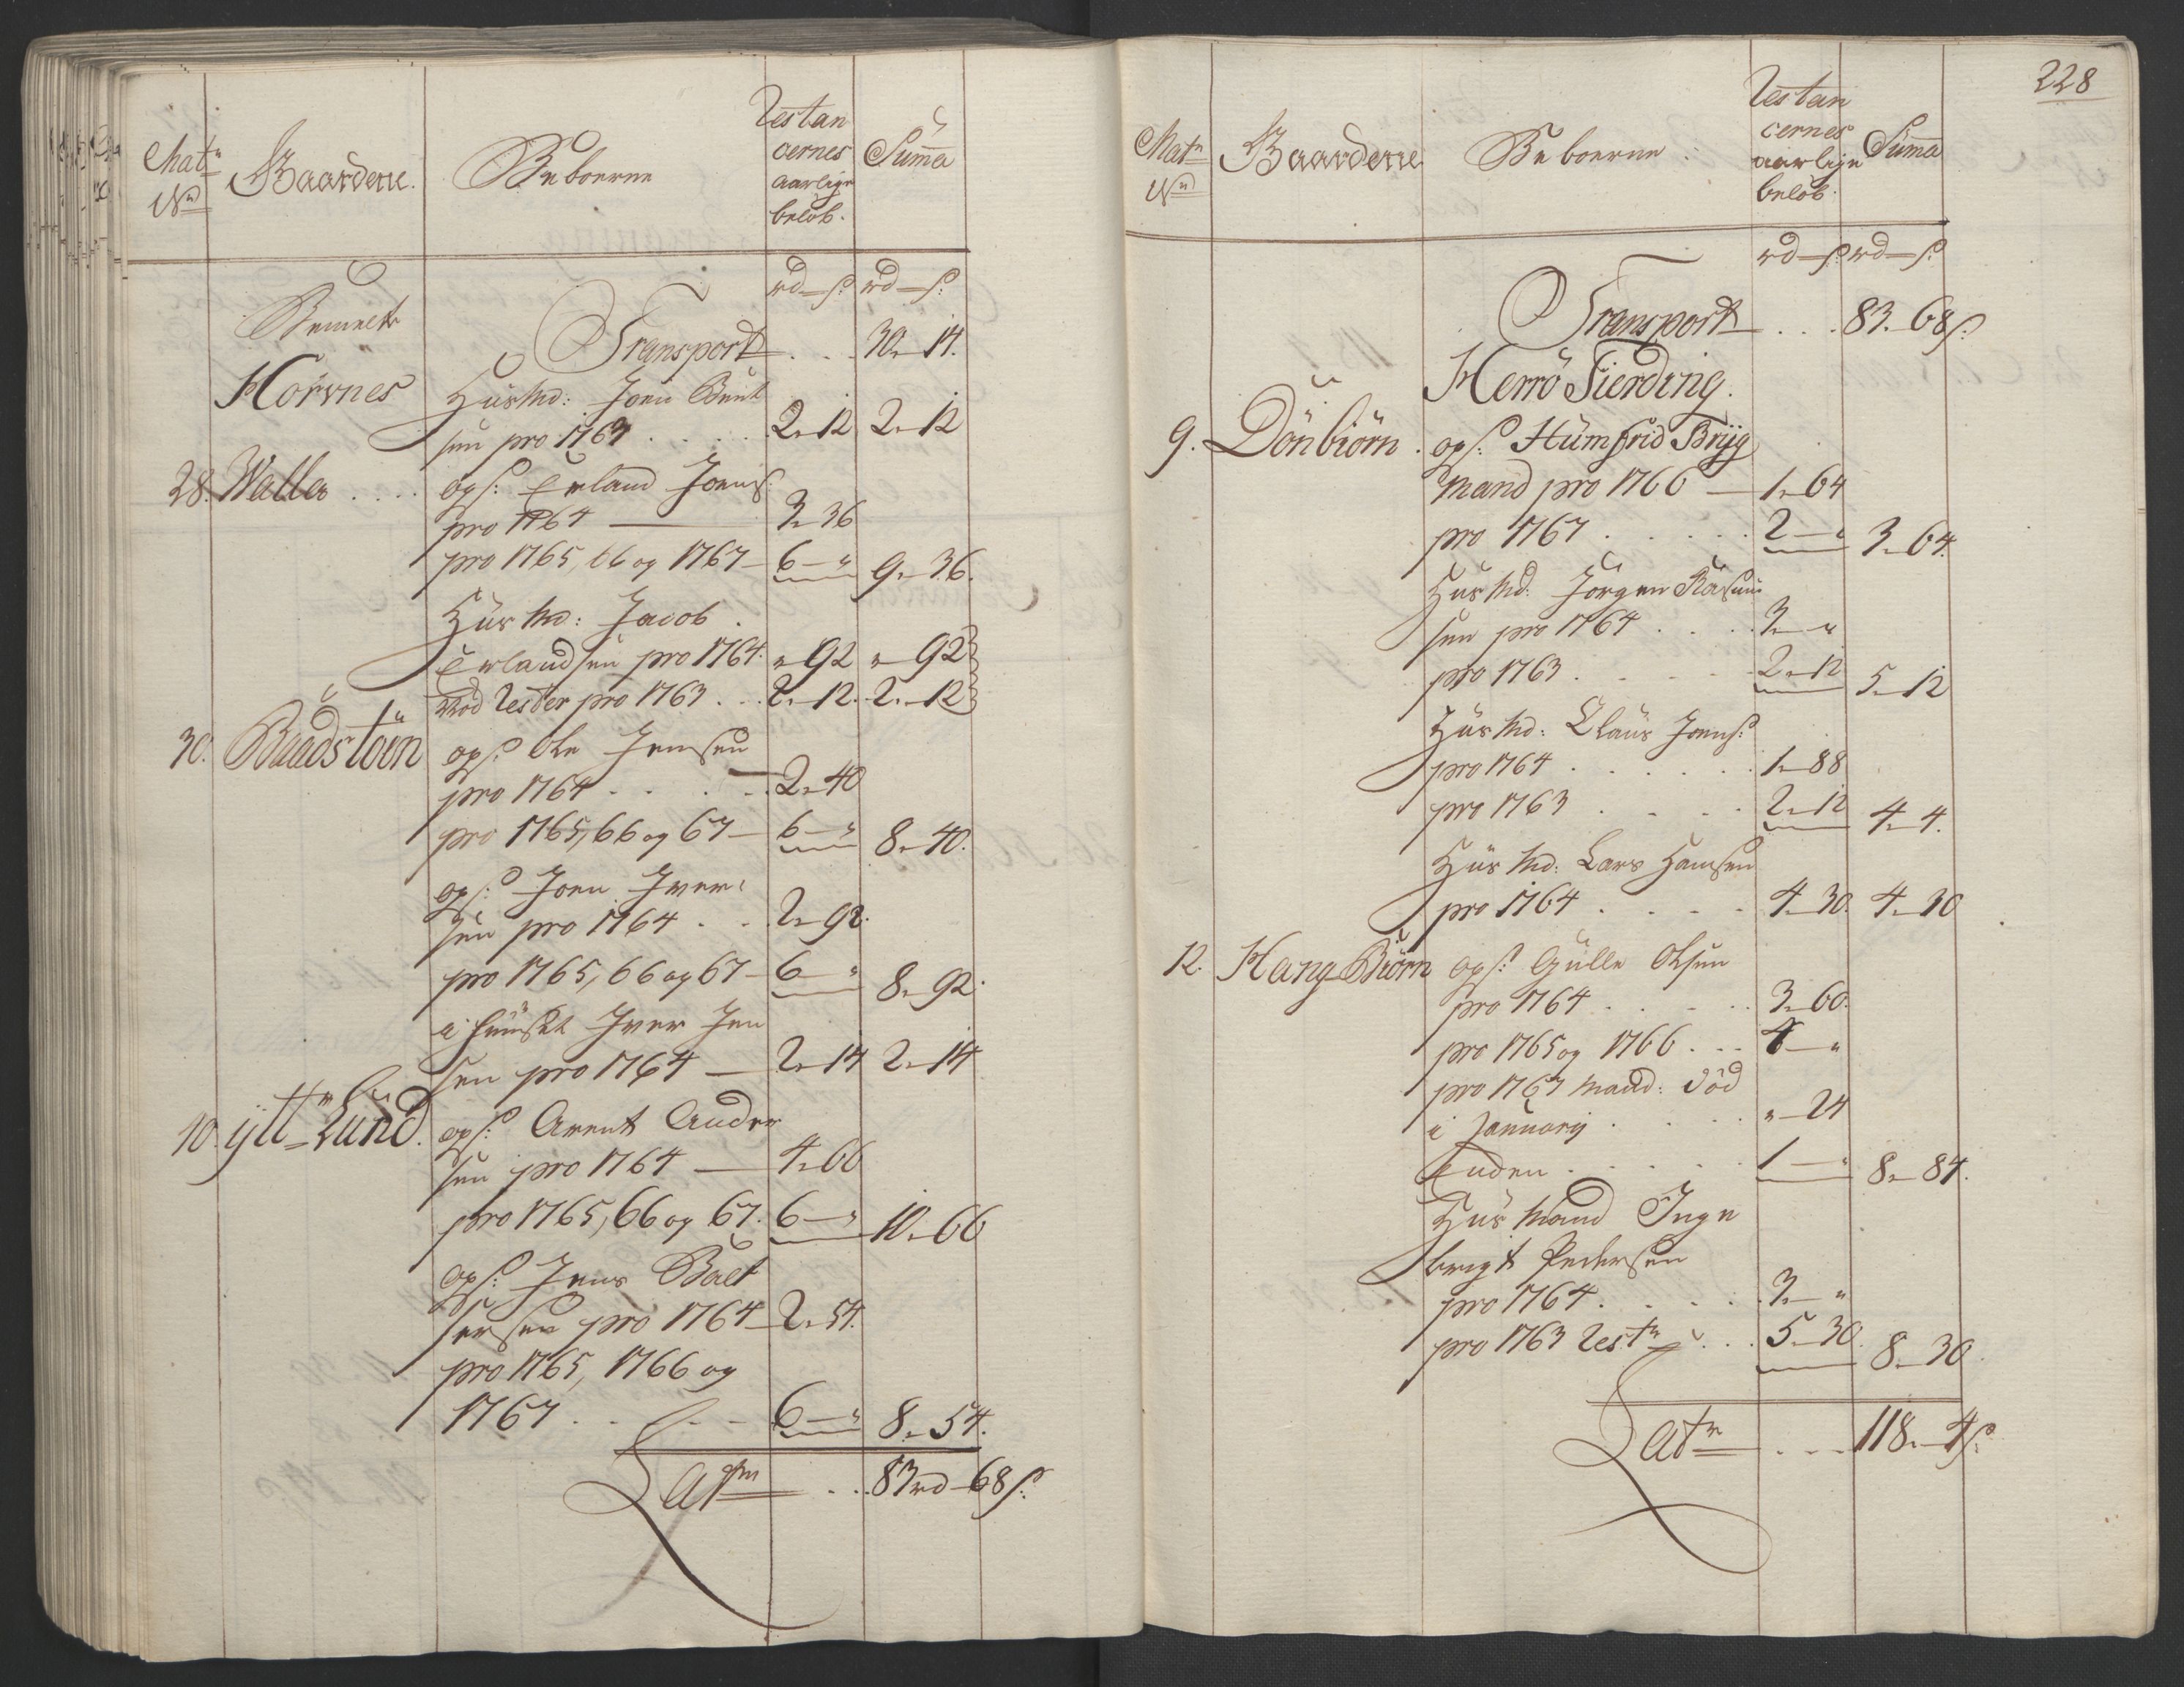 Matr No
Gaardene.
Beboerne
Restan
cernes
aarlige
beløb.
Summa
rd – s: rd – s:
Bemelte
Transport . . . 30 „ 14.
Hörvnes Husmd: Joen Bent
sen pro 1763 . . . . 2 „ 12 2 „ 12
28. Walla . . . . ops: Erland Joens:
pro 1764 — 3 „ 36
pro 1765, 66 og 1767 – 6 – „ 9 „ 36.
Husmd: Jacob
Erlandsen pro 1764. „ 92 „ 92
Nod Rester pro 1763 . . 2 „ 12. 2 „ 12
30. Baadstöen ops: Ole Jensen
pro 1764 . . . . 2 „ 40
pro 1765, 66 og 67 – 6 – „ 8 „ 40.
ops: Joen Iver:
sen pro 1764 . . 2 „ 92.
pro 1765, 66 og 67 – 6 – „ 8 „ 92.
i huuset Iver Jen
sen pro 1764 — 2 „ 14 2 „ 14
40. ytt„ Lund. ops: Arent Ander
sen pro 1764 — 4 „ 66
pro 1765, 66 og 67. 6 – „ 10 „ 66
ops: Jens Balt
sersen pro 1764 – 2 „ 54.
pro 1765, 1766 og
1767 . . . . 6 – „ 8 „ 54.
Latr . . . 83 rd – 68 s:
228
Matr No
Gaardene
Beboerne:
Restan
cernes
aarlige
beløb:
Summa
rd – s: rd – s:
Transport . . . 83. 68 s:
Herrö Fierding.
9. Dönbiörn. ops: Humfrid Bryg
mand pro 1766 — 1 „ 64
pro 1767 . . . . . 2 – „ 3 „ 64.
Husmd: Jörgen Rasmu
sen pro 1764 . . . . 3 – „
pro 1763 . . . . . 2 „ 12 5 „ 12
Husmd: Claus Joens:
pro 1764 . . . . . . 1 „ 88
pro 1763 . . . . 2 „ 12 4 „ 4.
Husmd: Lars Hansen
pro 1764 . . . . 4 „ 30. 4 „ 30
12. Hang Biörn ops: Gulle Olsen
pro 1764 . . . . 3 „ 60.
pro 1765 og 1766 . . . 4 – „
pro 1767 mand: död
i January . . . . „ – 24
Enden . . . . . 1 – „ 8 „ 84.
Husmand Inge
brigt Pedersen
pro 1764 . . . . . 3 – „
pro 1763 Restr . . . 5 „ 30. 8 „ 30
Latr . . . 118 „ 4 s: